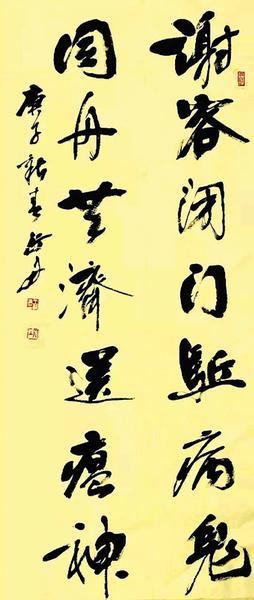 谢客闭门駈病鬼
同舟共濟送瘟神
庚子新春